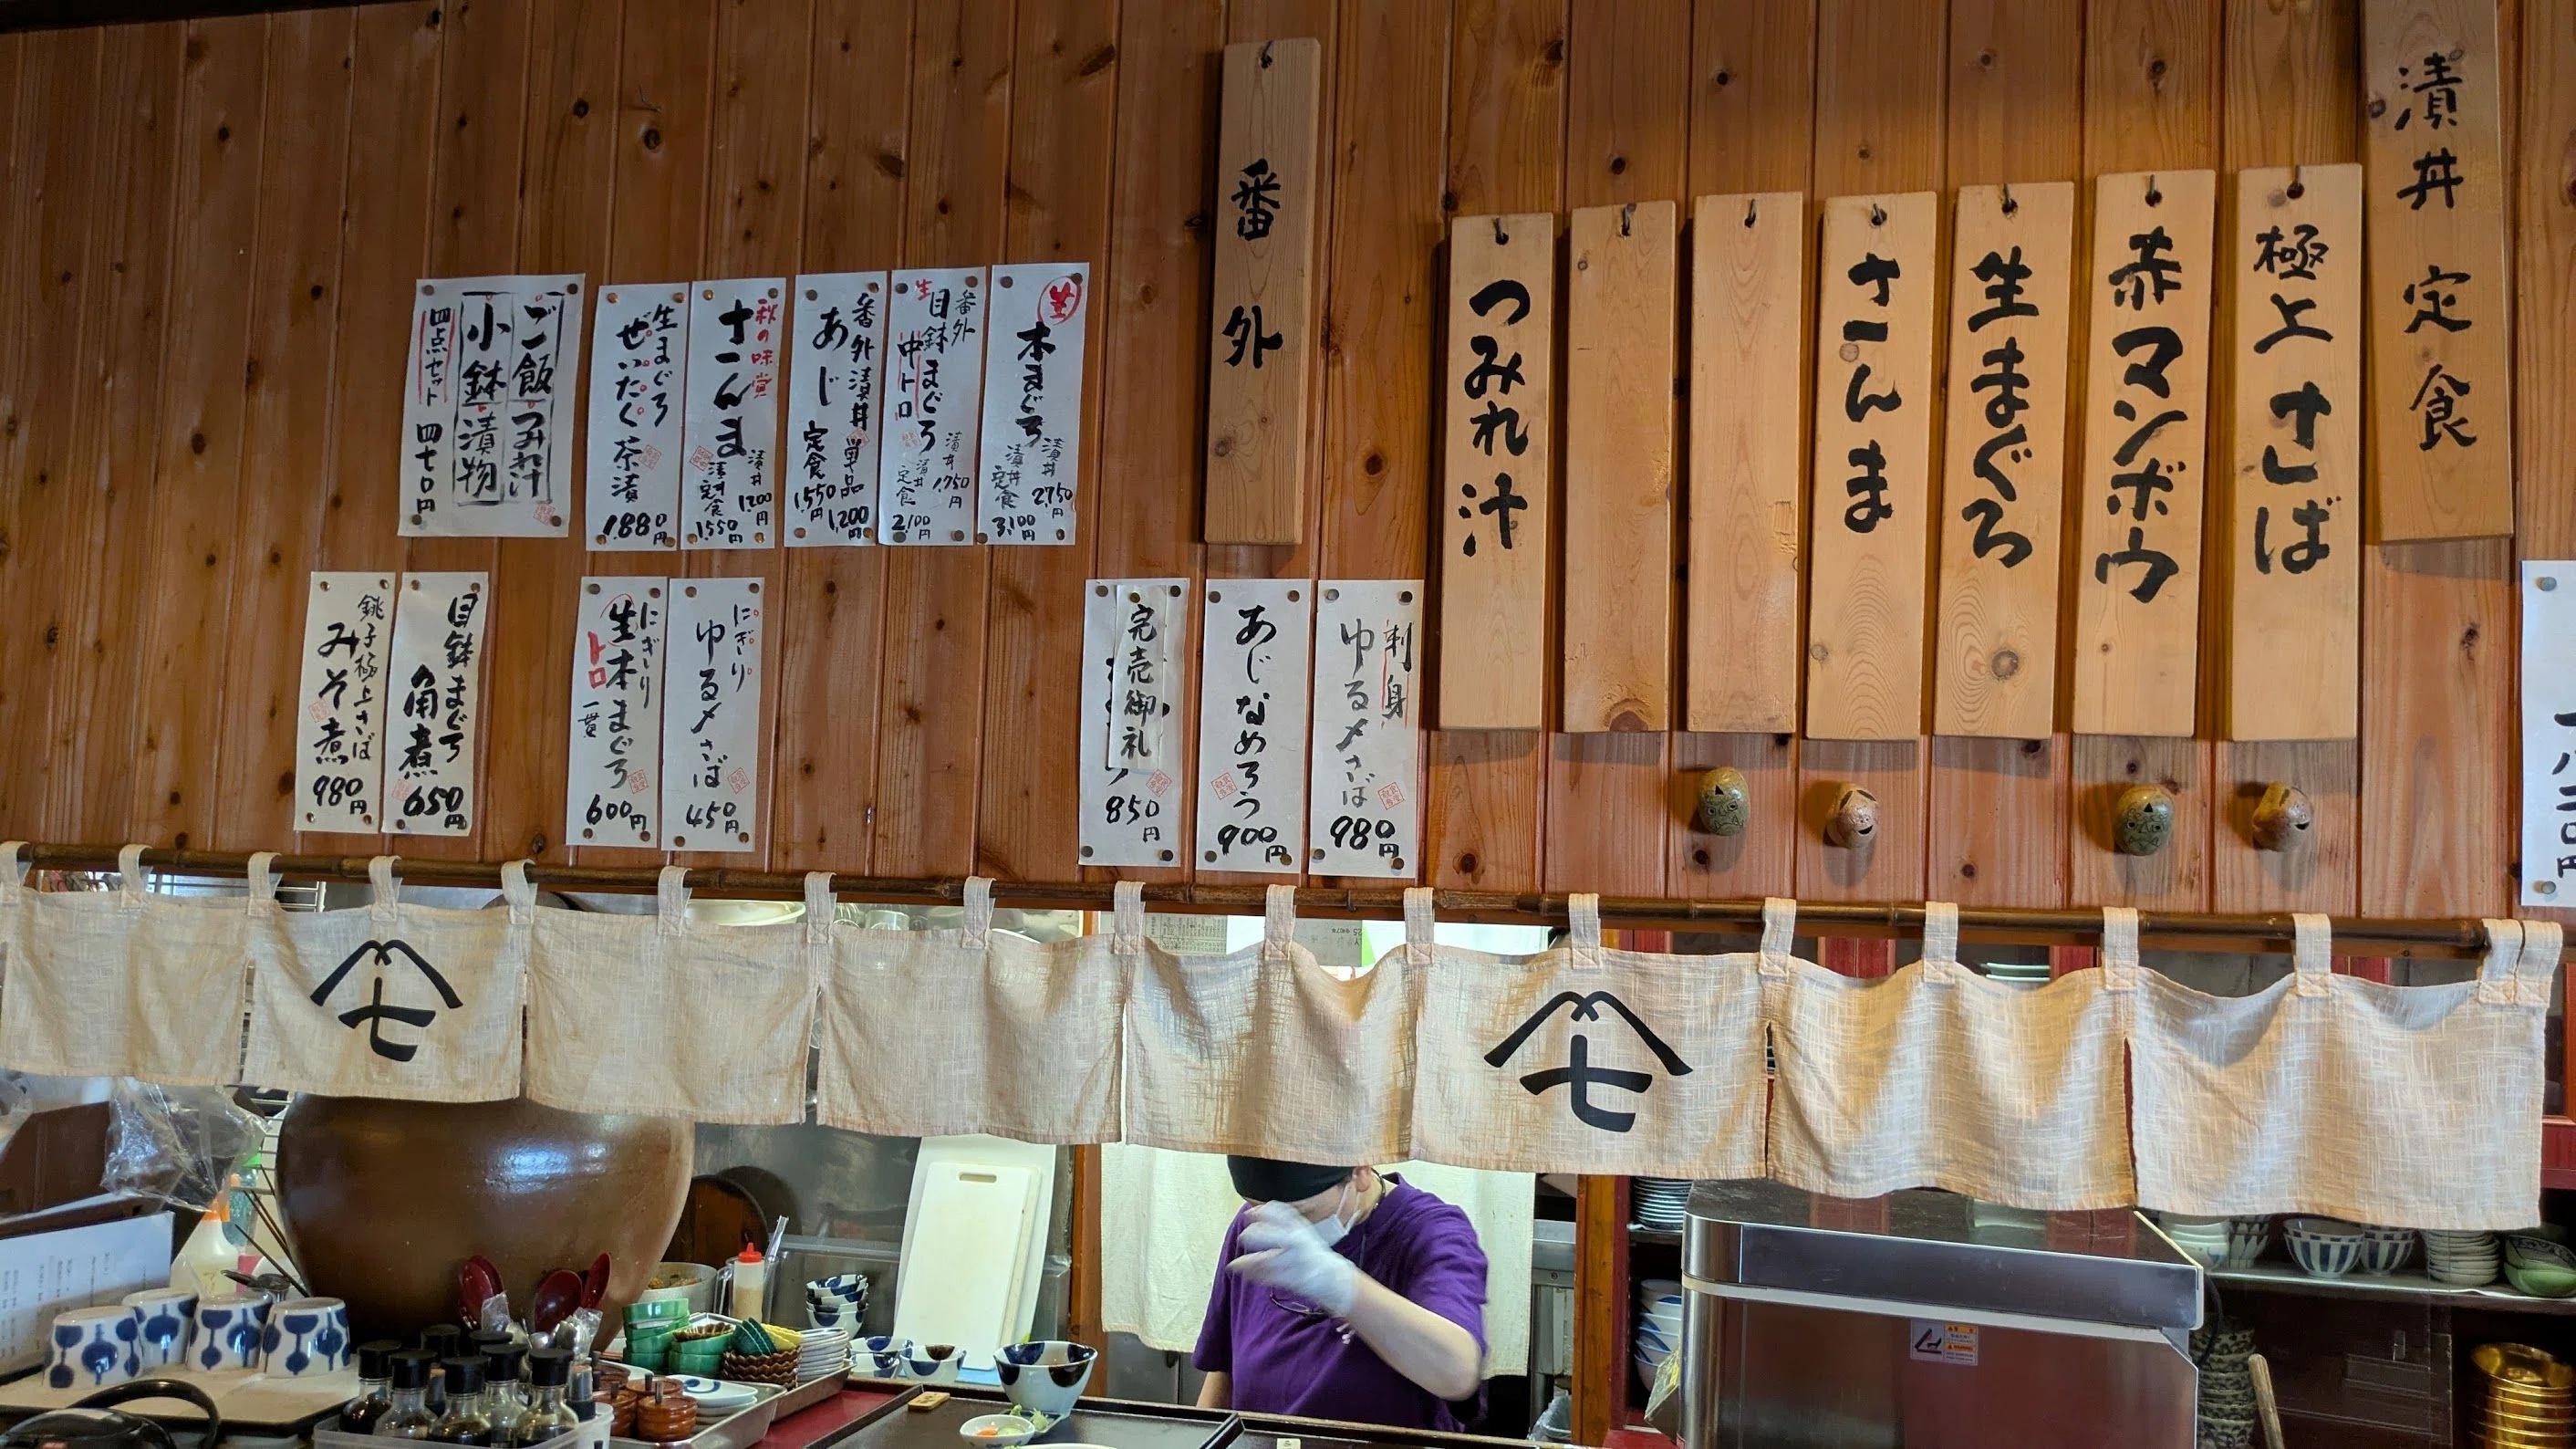 漬丼定食
極上さば
赤マンボウ
生まぐろ
さんま
つみれ汁
番外
生
本まぐろ
漬丼 2,750円
漬丼定食 3,100円
番外
生目鉢まぐろ
中トロ
漬丼 1,750円
漬丼定食 2,100円
番外漬丼
あじ
単品 1,200円
定食 1,550円
秋の味覚
さんま
漬丼 1,200円
漬丼定食 1,550円
生まぐろ
ぜいたく茶漬
1,880円
ご飯 つみれ汁
小鉢 漬物
四点セット 四七〇円
刺身
ゆる〆さば
980円
あじなめろう
900円
完売御礼
850円
にぎり
ゆる〆さば
450円
にぎり
生本まぐろ
トロ
一貫
600円
目鉢まぐろ
角煮
650円
銚子極上さば
みそ煮
980円
七
七